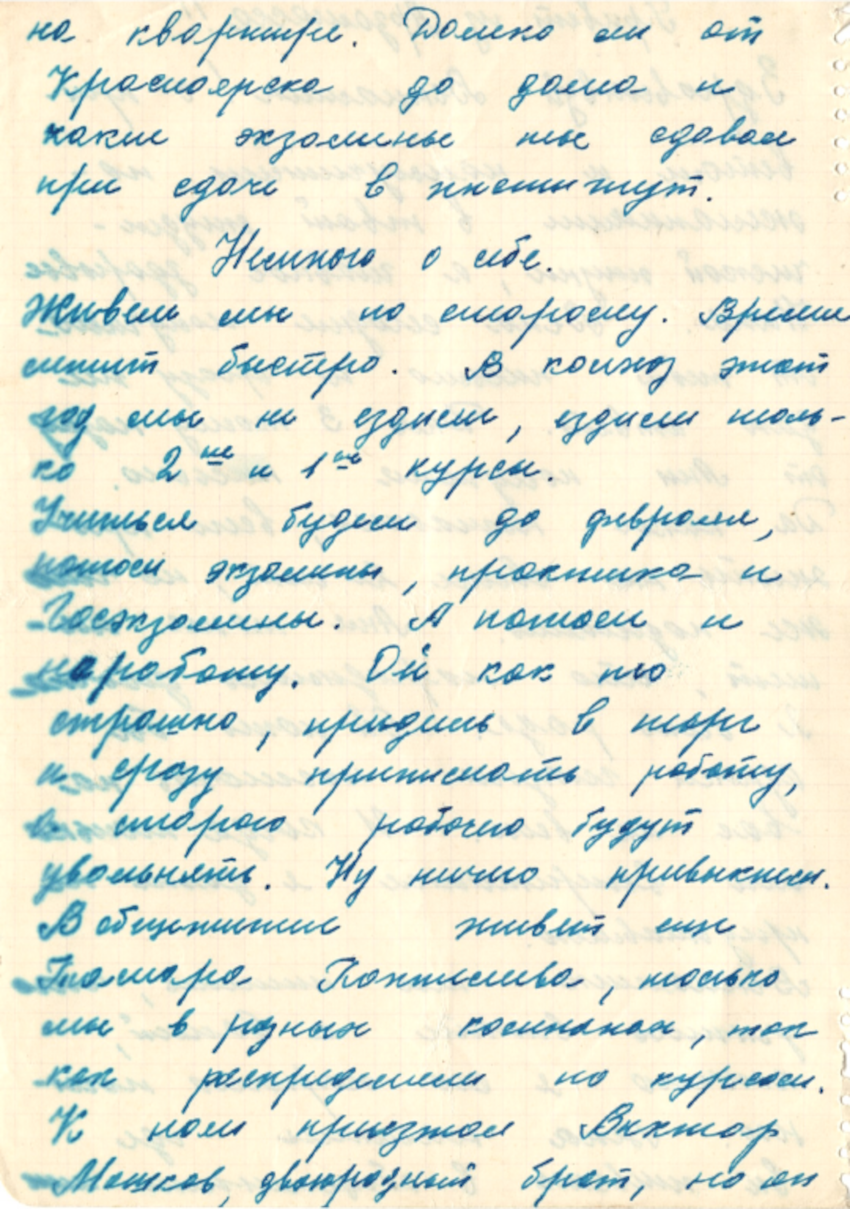 на квартире. Далеко ли от
Красноярска до дома и
какие экзамены ты сдавал
при сдаче в институт.
Немного о себе.
Живем мы по старому. Время
летит быстро. В колхоз этот
год мы не ездили, ездили толь-
ко 2ые и 1ые курсы.
Учиться будем до февраля,
потом экзамены, практика и
Госэкзамены. А потом и
на работу. Ой как то
страшно, придешь в торг
и сразу принимать работу,
а старого рабочего будут
увольнять. Ну ничего привыкнем.
В общежитии живет еще
Тамара Пантелеева, только
мы в разных комнатах, так
как распределили по курсам.
К нам приезжал Виктор
Машков, двоюродный брат, но он